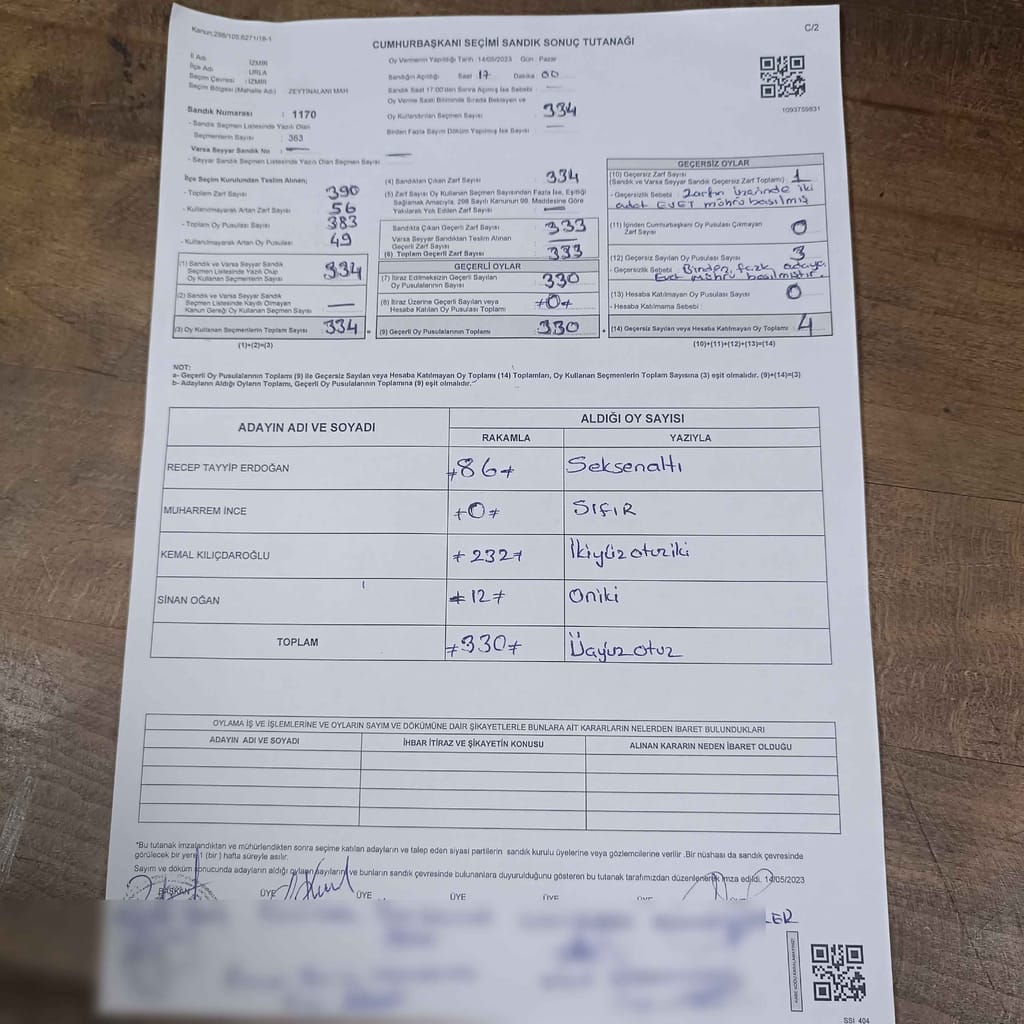 Kanun:298/105.6271/18-1
C/2
CUMHURBAŞKANI SEÇİMİ SANDIK SONUÇ TUTANAĞI
İl Adı : İZMİR
İlçe Adı : URLA
Seçim Çevresi : İZMİR
Seçim Bölgesi (Mahalle Adı) ZEYTİNALANI MAH
Oy Vermenin Yapıldığı Tarih :14/05/2023 Gün : Pazar
Sandığın Açıldığı Saat 17 Dakika 00
Sandık Saat 17:00'den Sonra Açılmış İse Sebebi
Oy Verme Saati Bitiminde Sırada Bekleyen ve
Oy Kullandırılan Seçmen Sayısı 334
Birden Fazla Sayım Döküm Yapılmış İse Sayısı —
1093759831
Sandık Numarası : 1170
- Sandık Seçmen Listesinde Yazılı Olan
Seçmenlerin Sayısı : 363
Varsa Seyyar Sandık No : —
- Seyyar Sandık Seçmen Listesinde Yazılı Olan Seçmen Sayısı —
İlçe Seçim Kurulundan Teslim Alınan;
- Toplam Zarf Sayısı 390
- Kullanılmayarak Artan Zarf Sayısı 56
- Toplam Oy Pusulası Sayısı 383
- Kullanılmayarak Artan Oy Pusulası 49
(1) Sandık ve Varsa Seyyar Sandık
Seçmen Listesinde Yazılı Olup
Oy Kullanan Seçmenlerin Sayısı 334
(2) Sandık ve Varsa Seyyar Sandık
Seçmen Listesinde Kayıtlı Olmayan
Kanun Gereği Oy Kullanan Seçmen Sayısı —
(3) Oy Kullanan Seçmenlerin Toplam Sayısı 334
(1)+(2)=(3)
(4) Sandıktan Çıkan Zarf Sayısı 334
(5) Zarf Sayısı Oy Kullanan Seçmen Sayısından Fazla İse, Eşitliği
Sağlamak Amacıyla, 298 Sayılı Kanunun 98. Maddesine Göre
Yakılarak Yok Edilen Zarf Sayısı —
Sandıkta Çıkan Geçerli Zarf Sayısı 333
Varsa Seyyar Sandıktan Teslim Alınan
Geçerli Zarf Sayısı —
(6) Toplam Geçerli Zarf Sayısı 333
GEÇERLİ OYLAR
(7) İtiraz Edilmeksizin Geçerli Sayılan
Oy Pusulalarının Sayısı 330
(8) İtiraz Üzerine Geçerli Sayılan veya
Hesaba Katılan Oy Pusulası Toplamı +0+
(9) Geçerli Oy Pusulalarının Toplamı 330
GEÇERSİZ OYLAR
(10) Geçersiz Zarf Sayısı
(Sandık ve Varsa Seyyar Sandık Geçersiz Zarf Toplamı) 1
- Geçersizlik Sebebi : Zarfın üzerinde iki
adet EVET mührü basılmış
(11) İçinden Cumhurbaşkanı Oy Pusulası Çıkmayan
Zarf Sayısı 0
(12) Geçersiz Sayılan Oy Pusulası Sayısı 3
- Geçersizlik Sebebi : Birden fazla adaya
Evet mührü basılmıştır.
(13) Hesaba Katılmayan Oy Pusulası Sayısı 0
- Hesaba Katılmama Sebebi :
(14) Geçersiz Sayılan veya Hesaba Katılmayan Oy Toplamı 4
(10)+(11)+(12)+(13)=(14)
NOT:
a- Geçerli Oy Pusulalarının Toplamı (9) ile Geçersiz Sayılan veya Hesaba Katılmayan Oy Toplamı (14) Toplamları, Oy Kullanan Seçmenlerin Toplam Sayısına (3) eşit olmalıdır. (9)+(14)=(3)
b- Adayların Aldığı Oyların Toplamı, Geçerli Oy Pusulalarının Toplamına (9) eşit olmalıdır.
ADAYIN ADI VE SOYADI ALDIĞI OY SAYISI
RAKAMLA YAZIYLA
RECEP TAYYİP ERDOĞAN +86+ Seksenaltı
MUHARREM İNCE +0+ SIFIR
KEMAL KILIÇDAROĞLU +232+ İkiyüzotuziki
SİNAN OĞAN +12+ Oniki
TOPLAM +330+ Üçyüzotuz
OYLAMA İŞ VE İŞLEMLERİNE VE OYLARIN SAYIM VE DÖKÜMÜNE DAİR ŞİKAYETLERLE BUNLARA AİT KARARLARIN NELERDEN İBARET BULUNDUKLARI
ADAYIN ADI VE SOYADI İHBAR İTİRAZ VE ŞİKAYETİN KONUSU ALINAN KARARIN NEDEN İBARET OLDUĞU
*Bu tutanak imzalandıktan ve mühürlendikten sonra seçime katılan adayların ve talep eden siyasi partilerin sandık kurulu üyelerine veya gözlemcilerine verilir .Bir nüshası da sandık çevresinde
görülecek bir yere 1 (bir ) hafta süreyle asılır.
Sayım ve döküm sonucunda adayların aldığı oyların sayıların ve bunların sandık çevresinde bulunanlara duyurulduğunu gösteren bu tutanak tarafımızdan düzenlenerek imza edildi. 14/05/2023
BAŞKAN ÜYE ÜYE ÜYE ÜYE ÜYE
LER
SSI 404